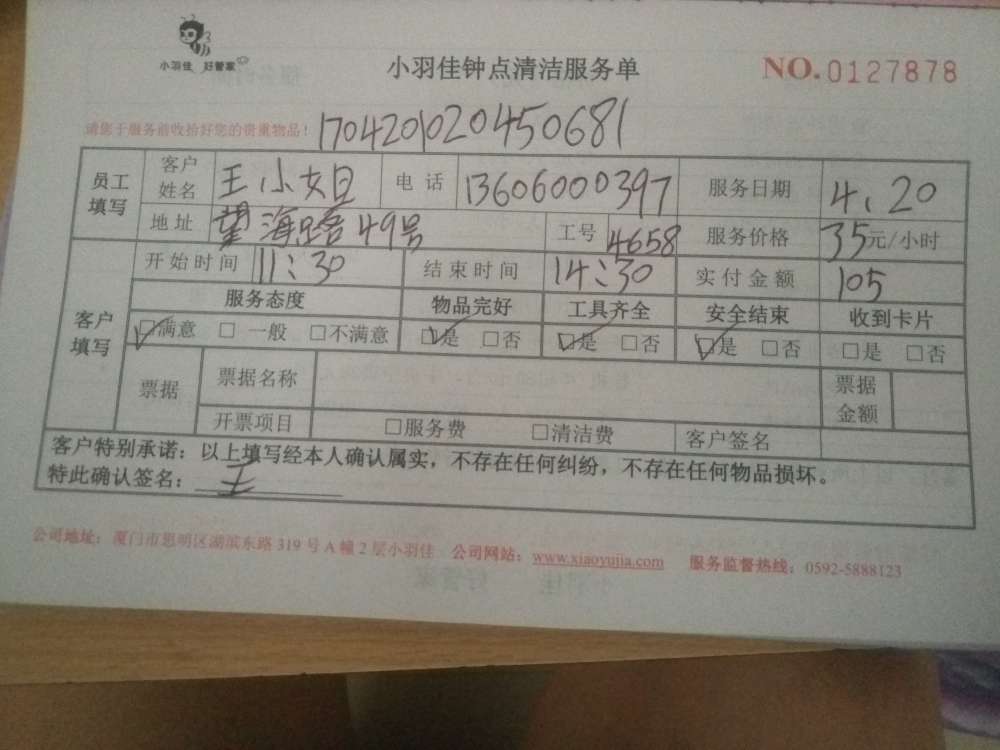 小羽佳 好管家
小羽佳钟点清洁服务单
NO.0127878
请您于服务前收拾好您的贵重物品！
1704201020450681
员工填写 客户姓名 王小姐 电话 13606000397 服务日期 4.20
地址 望海路49号 工号 4658 服务价格 35元/小时
客户填写 开始时间 11:30 结束时间 14:30 实付金额 105
服务态度 物品完好 工具齐全 安全结束 收到卡片
☑满意 □一般 □不满意 ☑是 □否 ☑是 □否 ☑是 □否 □是 □否
票据 票据名称 票据金额
开票项目 □服务费 □清洁费 客户签名
客户特别承诺：以上填写经本人确认属实，不存在任何纠纷，不存在任何物品损坏。
特此确认签名：王
公司地址：厦门市思明区湖滨东路319号A幢2层小羽佳 公司网站：www.xiaoyujia.com 服务监督热线：0592-5888123